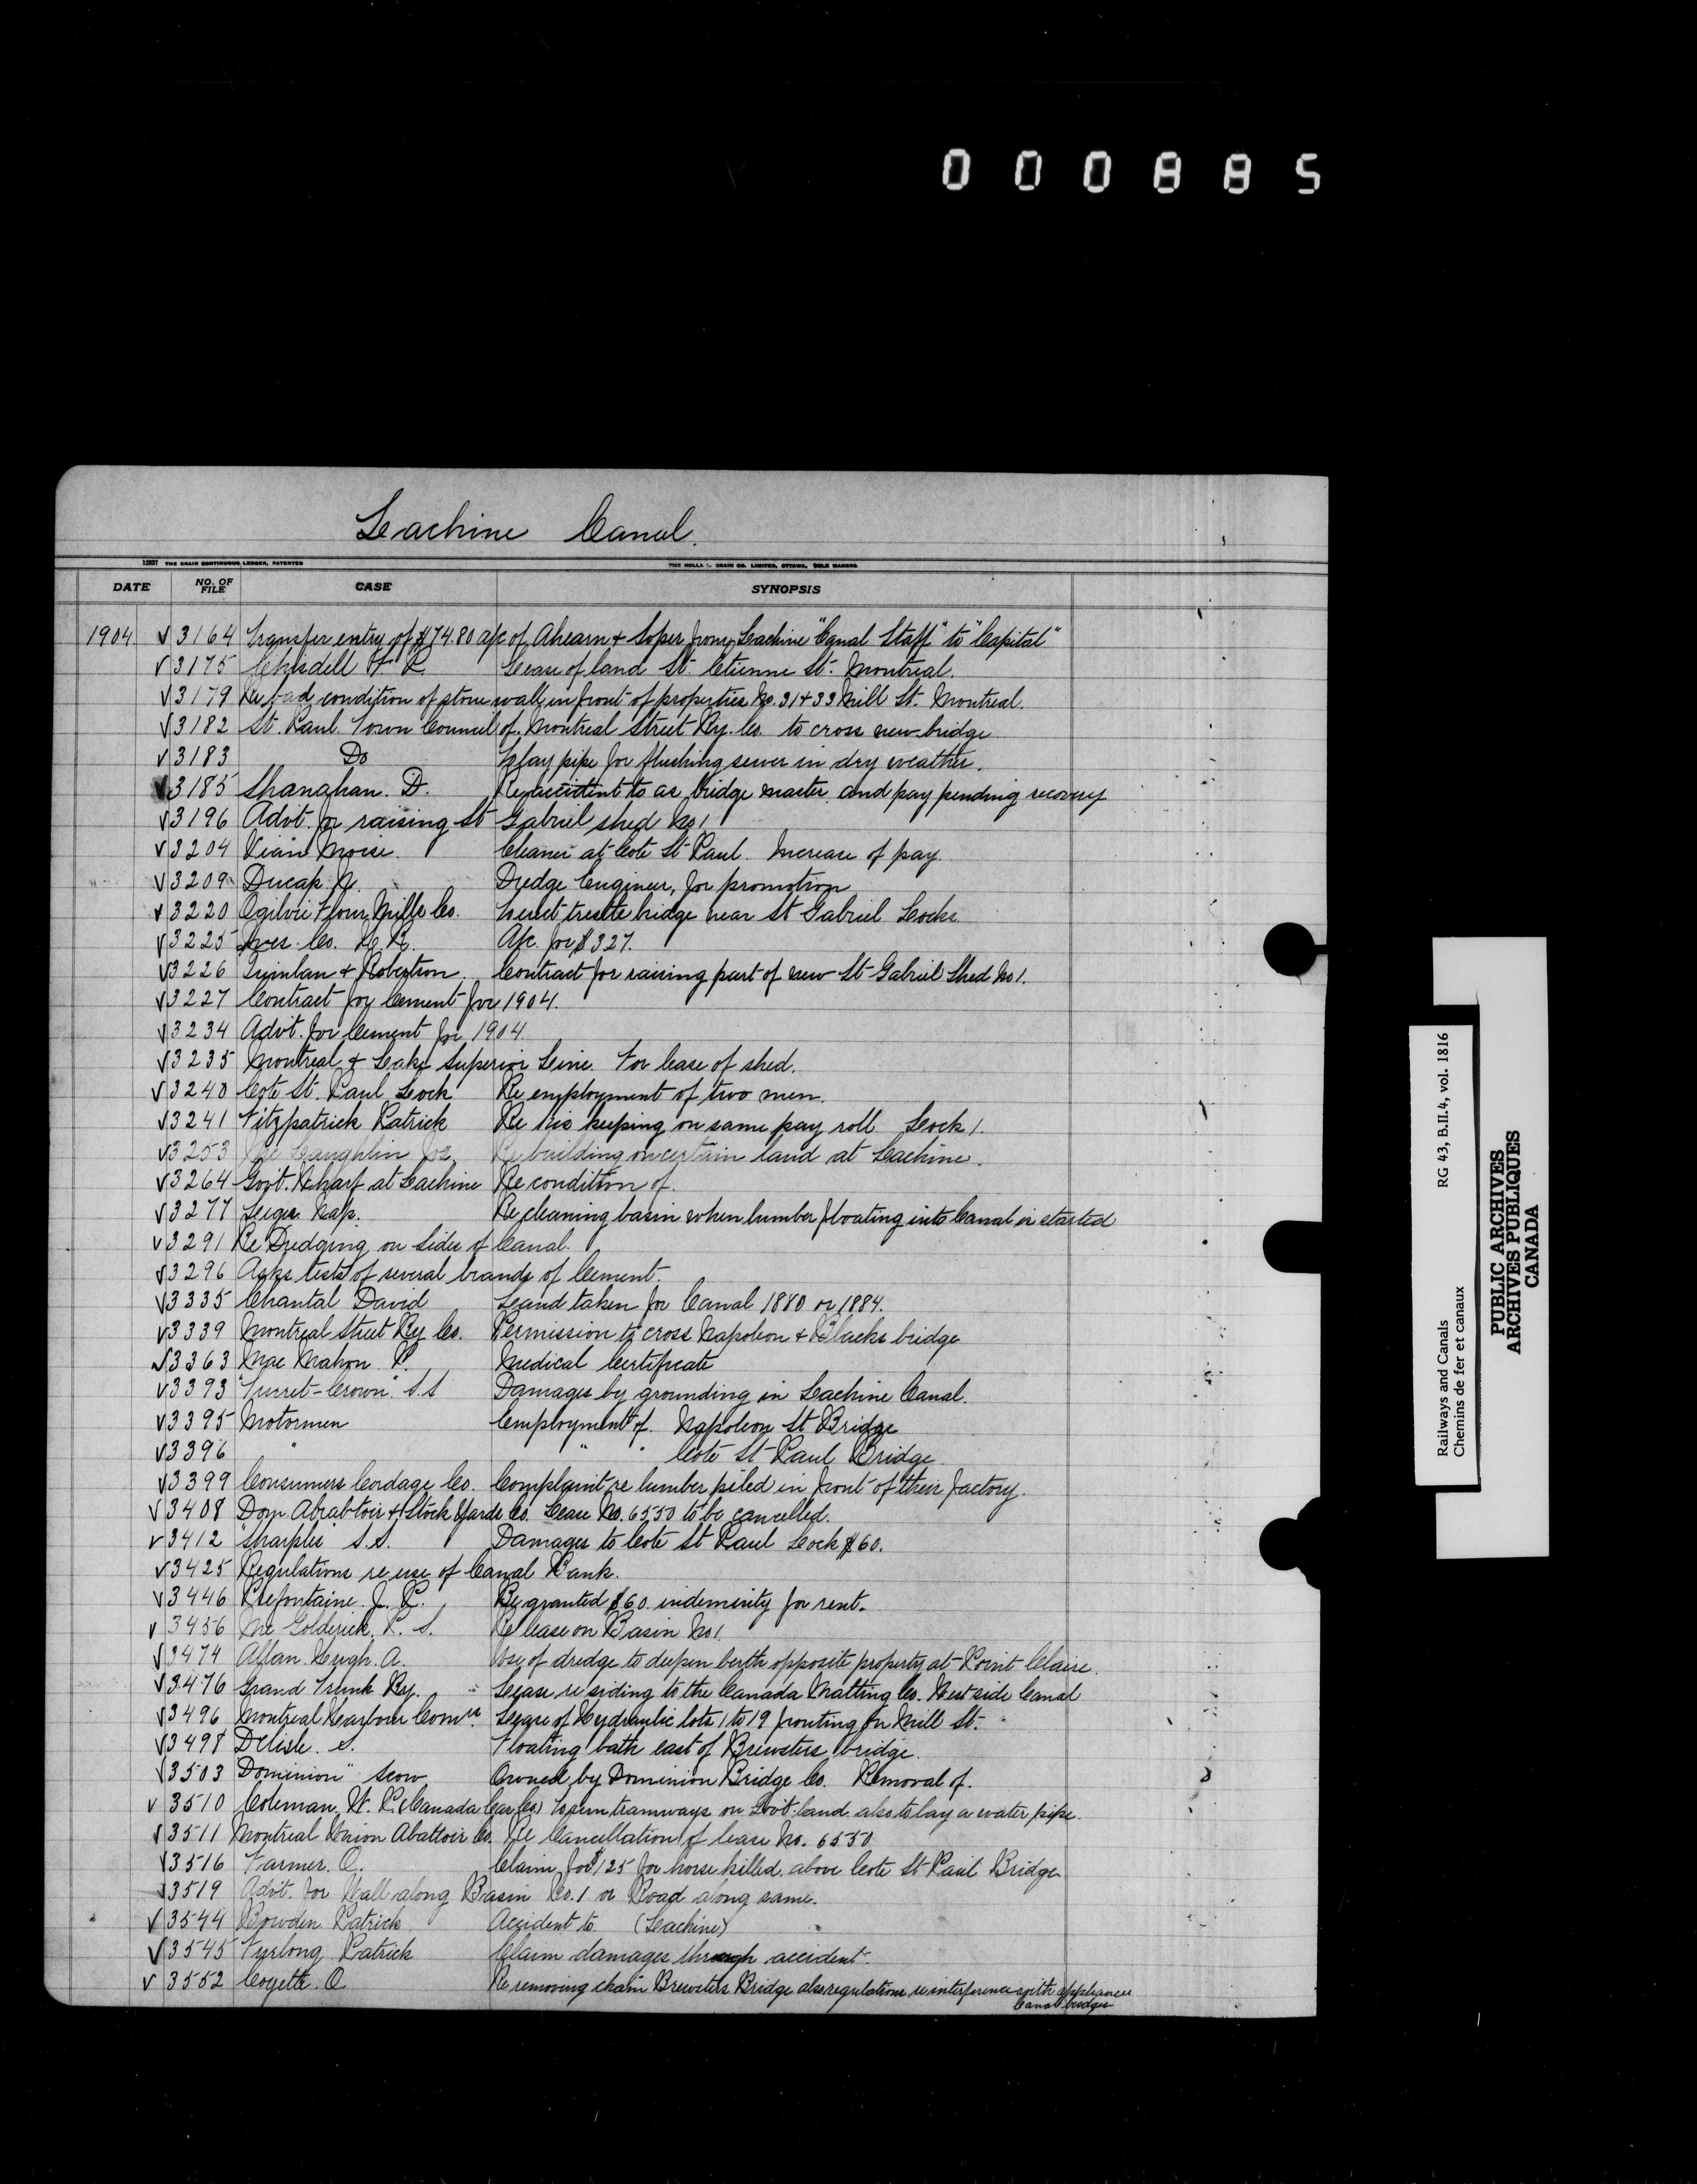 000885
Lachine Canal.
12537 THE CRAIN CONTINUOUS LEDGER, PATENTED THE ROLLA L. CRAIN CO. LIMITED, OTTAWA, SOLE MAKERS
DATE NO. OF FILE CASE SYNOPSIS
1904 V 3164 Transfer entry of $74.80 a/c of Ahearn & Soper from Lachine "Canal Staff" to "Capital"
V 3175 Chisdell F. R. Lease of land St. Etienne St. Montreal.
V 3179 Re bad condition of stone wall in front of properties No. 31 & 33 Mill St. Montreal.
V 3182 St. Paul Town Council of. Montreal Street Ry. Co. to cross new bridge
V 3183 Do To lay pipe for flushing sewer in dry weather.
V 3185 Shanahan. D. Re accident to as bridge master and pay pending recovery
V 3196 Advt. for raising St Gabriel shed No 1
V 3204 Viau Moise. Cleaner at Cote St Paul. Increase of pay.
V 3209 Ducap N. Dredge Engineer, for promotion
V 3220 Ogilvie Flour Mills Co. To erect trestle bridge near St Gabriel Locks
V 3225 Ives Co. H. R. A/c. for $327.
V 3226 Quinlan & Robertson. Contract for raising part of new St Gabriel Shed No 1.
V 3227 Contract for Cement for 1904.
V 3234 Advt. for Cement for 1904.
V 3235 Montreal & Lake Superior Line. For lease of shed.
V 3240 Cote St. Paul Lock Re employment of two men.
V 3241 Fitzpatrick Patrick Re his keeping on same pay roll Lock 1.
V 3253 Mc Laughlin Jos. Re building on certain land at Lachine.
V 3264 Govt. Wharf at Lachine Re condition of.
V 3277 Leger Nap. Re cleaning basin when lumber floating into Canal is started
V 3291 Re Dredging on sides of Canal.
V 3296 Asks tests of several brands of Cement.
V 3335 Chantal David Land taken for Canal 1880 or 1884.
V 3339 Montreal Street Ry Co. Permission to cross Napoleon & Blacks bridge
V 3363 Mac Mahon P. Medical Certificate
V 3393 "Turret-Crown" S.S Damages by grounding in Lachine Canal.
V 3395 Motormen Employment of. Napoleon St Bridge
V 3396 " " " Cote St Paul Bridge.
V 3399 Consumers Cordage Co. Complaint re lumber piled in front of their factory.
V 3408 Dom Abattoir & Stock Yards Co. Lease No. 6550 to be cancelled.
V 3412 "Sharples" S.S. Damages to Cote St Paul Lock $60.
V 3425 Regulations re use of Canal Bank.
V 3446 Prefontaine J. R. Be granted $60. indemnity for rent.
V 3456 Mc Goldrick. P. S. Re lease on Basin No 1.
V 3474 Allan. Hugh. A. Use of dredge to deepen berth opposite property at Point Claire.
V 3476 Grand Trunk Ry. Lease re siding to the Canada Malting Co. West side Canal
V 3496 Montreal Harbour Comrs. Lease of Hydraulic lots 1 to 19 fronting on Mill St.
V 3498 Delisle. S. Floating bath east of Brewsters bridge.
V 3503 Dominion" Scow Owned by Dominion Bridge Co. Removal of.
V 3510 Coleman, W. P. (Canada Car Co) To run tramways on Govt. land. also to lay a water pipe.
V 3511 Montreal Union Abattoir Co. Re Cancellation of lease No. 6550
V 3516 Farmer. O. Claim for $125 for horse killed. above Cote St Paul Bridge
V 3519 Advt. for Wall along Basin No. 1 or Road along same.
V 3544 Bowden Patrick Accident to. (Lachine)
V 3545 Furlong Patrick Claim damages through accident.
V 3552 Coyette. O Re removing chain Brewsters Bridge also regulations re interference with appliances
Canal bridges
Railways and Canals RG 43, B.II.4, vol. 1816
Chemins de fer et canaux
PUBLIC ARCHIVES
ARCHIVES PUBLIQUES
CANADA